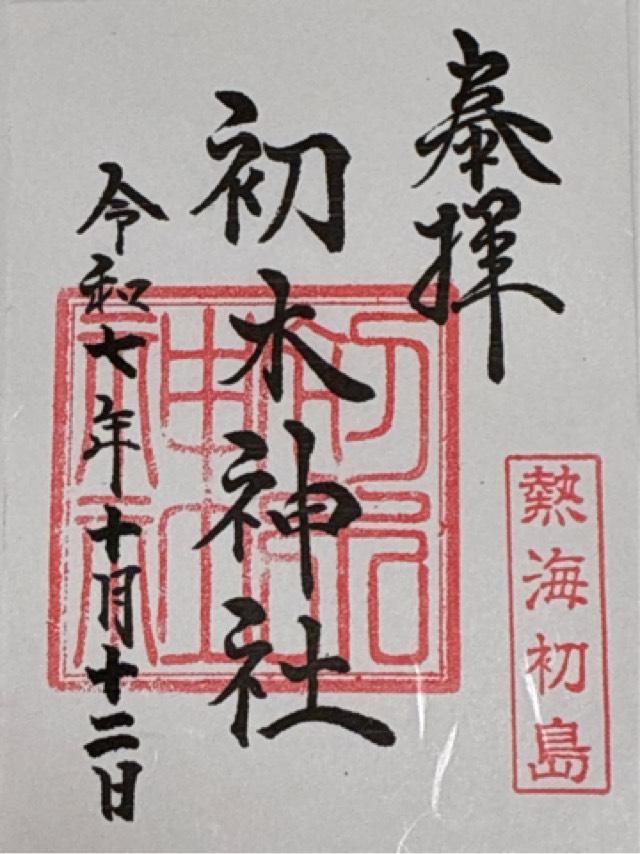 奉拝
熱海初島
初木神社
令和七年十月十二日